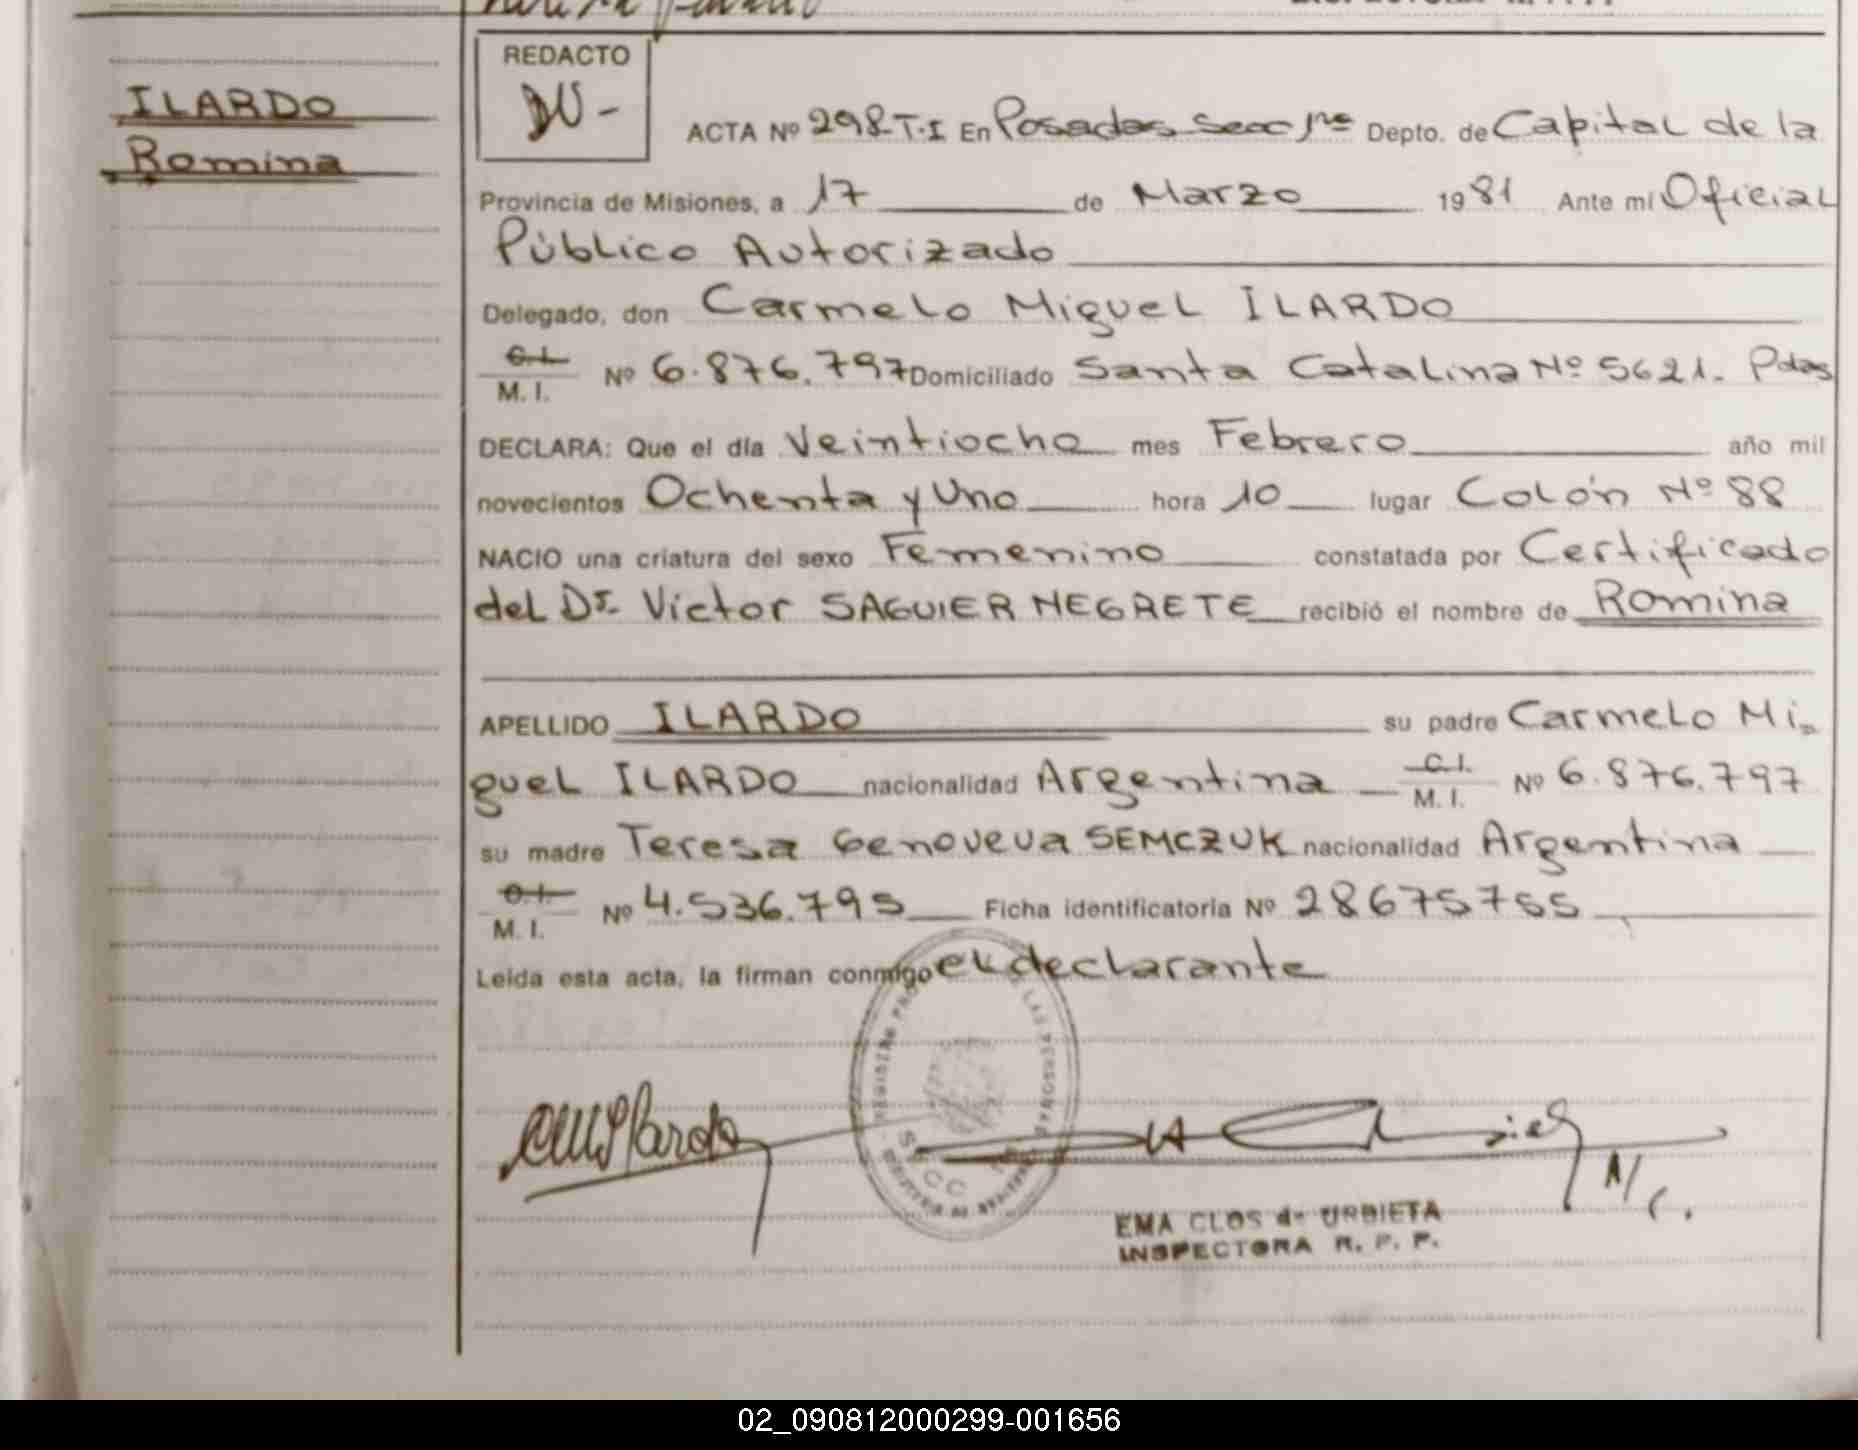 ILARDO
Romina
REDACTO
ACTA Nº 298 T.I En Posadas Secc 1ra Depto. de Capital de la
Provincia de Misiones, a 17 de Marzo 1981 Ante mí Oficial
Público Autorizado
Delegado, don Carmelo Miguel ILARDO
C.I.
M. I. Nº 6.876.797 Domiciliado Santa Catalina Nº 5621. Pdas
DECLARA: Que el día Veintiocho mes Febrero año mil
novecientos Ochenta y Uno hora 10 lugar Colón Nº 88
NACIO una criatura del sexo Femenino constatada por Certificado
del Dr. Víctor SAGUIER NEGRETE recibió el nombre de Romina
APELLIDO ILARDO su padre Carmelo Mi-
guel ILARDO nacionalidad Argentina C.I.
M. I. Nº 6.876.797
su madre Teresa Genoveva SEMCZUK nacionalidad Argentina
C.I.
M. I. Nº 4.536.795 Ficha identificatoria Nº 28675755
Leida esta acta, la firman conmigo el declarante
EMA CLOS de URBIETA
INSPECTORA R. P. P.
02_090812000299-001656